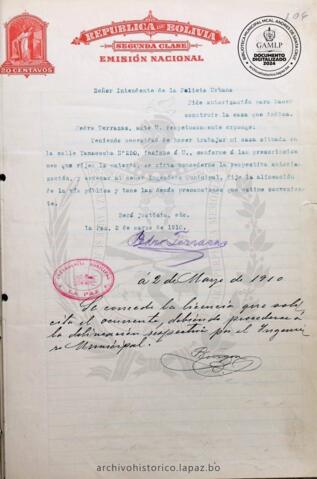 REPUBLICA DE BOLIVIA
SEGUNDA CLASE
EMISIÓN NACIONAL
20 CENTAVOS
GAMLP
DOCUMENTO
DIGITALIZADO
2024
Señor Intendente de la Policía Urbana
Pide autorización para hacer
construir la casa que indica.
Pedro Terrazas, ante U. respetuosamente expongo:
Teniendo necesidad de hacer trabajar mi casa situada en
la calle Yanacocha Nº 200, á U., conforme á las prescripcio
nes que rijen la materia, se sirva concederme la respectiva autoriza-
ción, y ordenar al señor Ingeniero Municipal, fije la alineación
de la vía pública y tome las demás precauciones que estime convenien-
te.
Será justicia, etc.
La Paz, 2 de marzo de 1910.
Pedro Terrazas
LA PAZ
á 2 de Marzo de 1910
Se concede la licencia que soli
cita el ocurrente, debiendo procederse á
la delineación respectiva por el Ingenie
ro Municipal.
archivohistorico.lapaz.bo